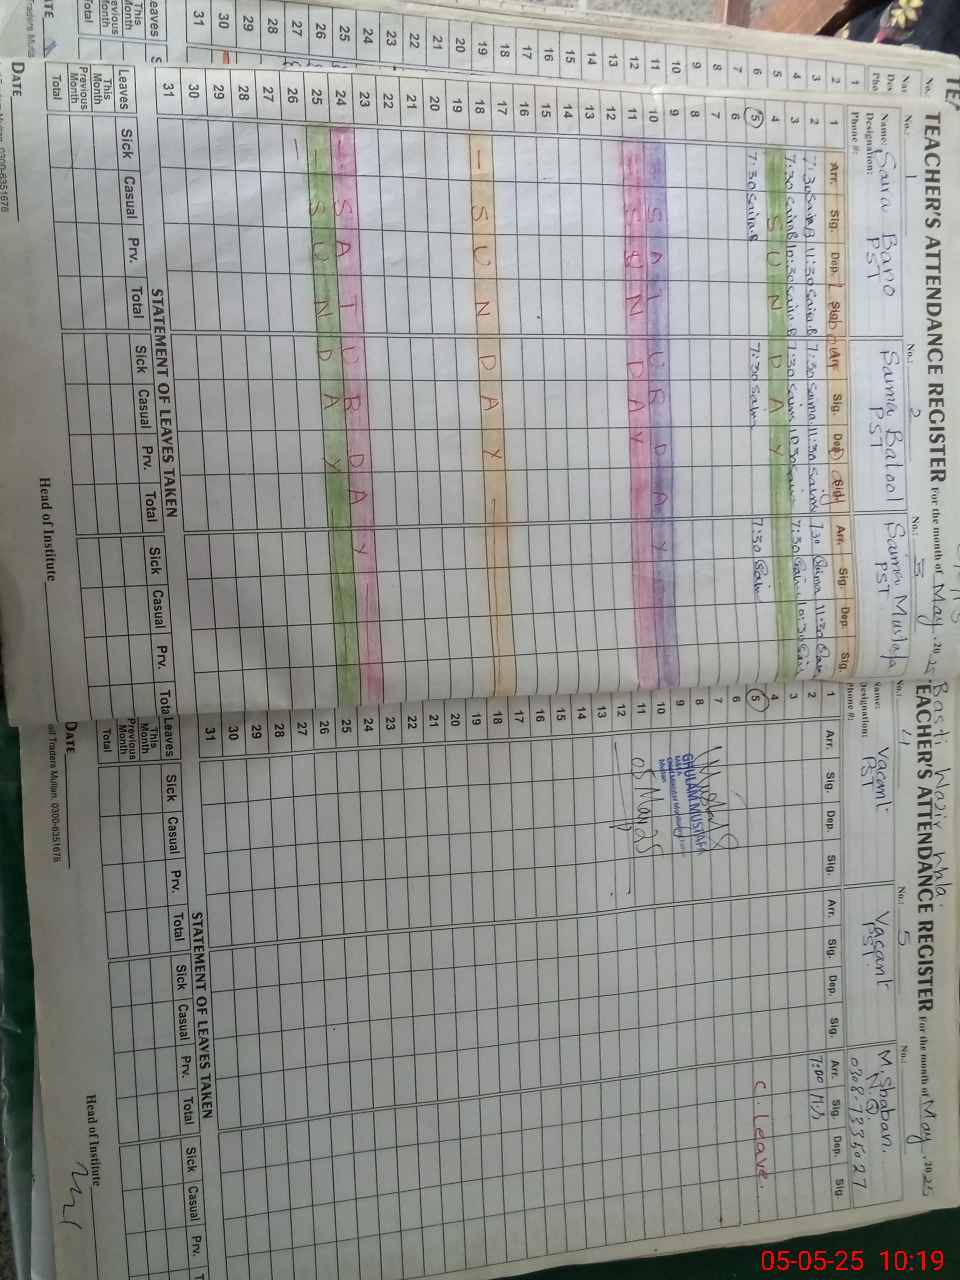 TEACHER'S ATTENDANCE REGISTER For the month of May, 2025
No.: 1
Name: Saira Bano
Designation: PST
Phone #:
No.: 2
Saima Batool
PST
No.: 3
Saima Mustafa
PST
Arr. Sig. Dep. Sig. Arr. Sig. Dep. Sig. Arr. Sig. Dep. Sig.
1
2 7:30 Saira B 11:30 Saira B 7:30 Saima 11:30 Saima 7:30 Saima 11:30
3 7:30 Saira B 10:30 Saira B 7:30 Saima 10:30 Saima 7:30 10:30
4 SUNDAY
5 7:30 Saira B 7:30 Saima 7:30
6
7
8
9
10 SATURDAY
11 SUNDAY
12
13
14
15
16
17
18 — SUNDAY —
19
20
21
22
23
24 SATURDAY
25 — SUNDAY
26 —
27
28
29
30
31
STATEMENT OF LEAVES TAKEN
Leaves Sick Casual Prv. Total Sick Casual Prv. Total Sick Casual Prv. Total
This Month
Previous Month
Total
DATE
Head of Institute
Basti Wazir
TEACHER'S ATTENDANCE REGISTER For the month of May, 2025
No.: 4
Name: Vacant
Designation: PST
Phone #:
No.: 5
Vacant
PST
No.:
M. Shaban
N.Q.
0308-7335027
Arr. Sig. Dep. Sig. Arr. Sig. Dep. Sig. Arr. Sig. Dep. Sig.
1
2 7:00 M.S
3
4
5 C. Leave
6
7
8
9
10
11
12
13
14
15
16
17
18
19
20
21
22
23
24
25
26
27
28
29
30
31
GHULAM MUSTAFA
M&EA
Multan
05 May 25
STATEMENT OF LEAVES TAKEN
Leaves Sick Casual Prv. Total Sick Casual Prv. Total Sick Casual Prv.
This Month
Previous Month
Total
DATE
Head of Institute
Traders Multan. 0300-6351678
05-05-25 10:19